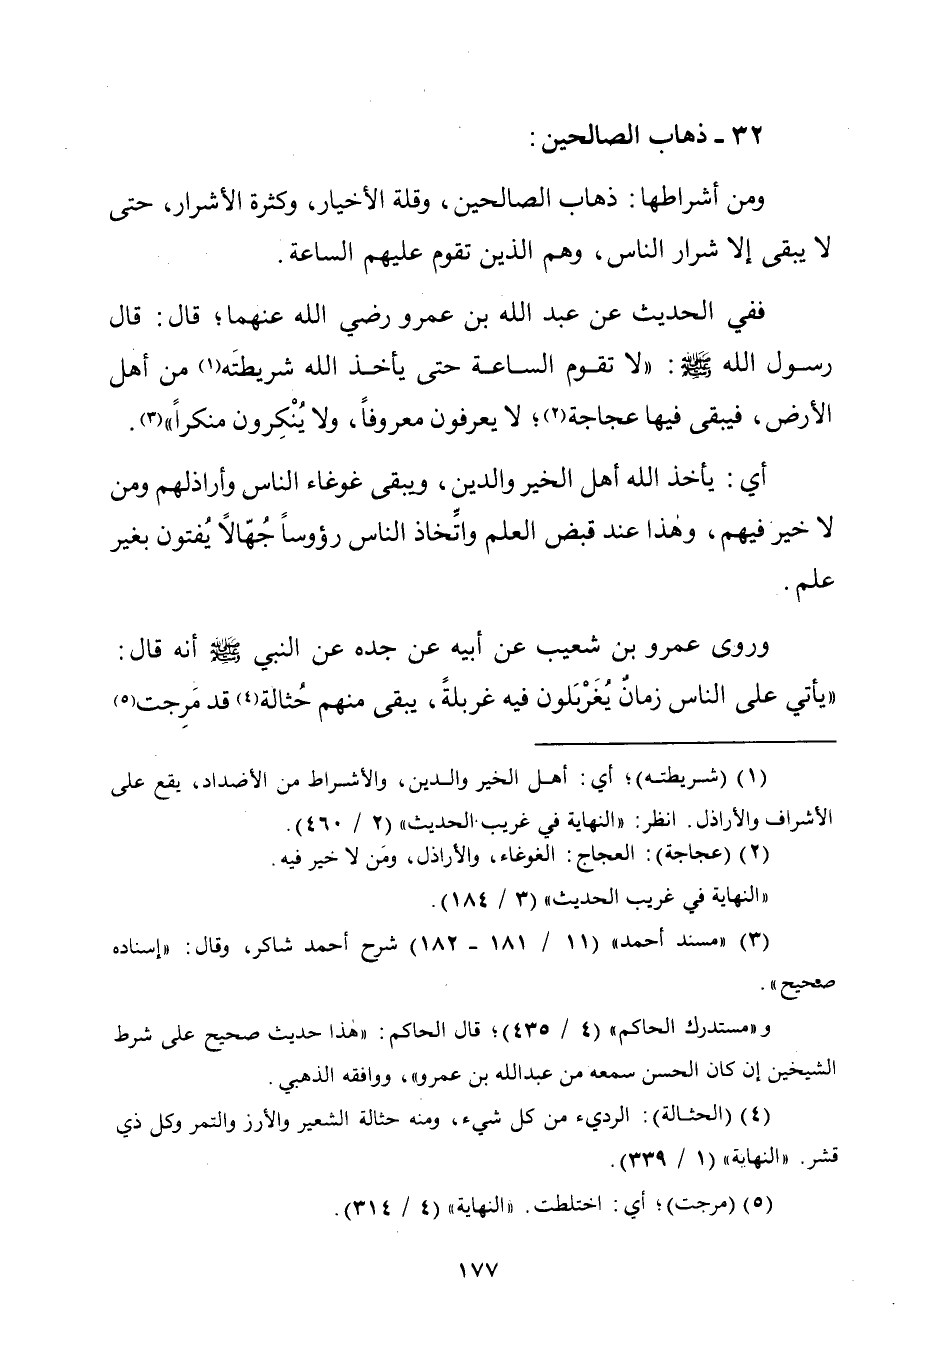 ٣٢ - ذهاب الصالحين :
ومن أشراطها : ذهاب الصالحين ، وقلة الأخيار، وكثرة الأشرار، حتى
لا يبقى إلا شرار الناس ، وهم الذين تقوم عليهم الساعة .
ففي الحديث عن عبد الله بن عمرو رضي الله عنهما؛ قال : قال
رسول الله ﷺ : «لا تقوم الساعة حتى يأخذ الله شريطتَه(١) من أهل
الأرض ، فيبقى فيها عجاجة(٢)؛ لا يعرفون معروفاً، ولا يُنْكِرون منكراً»(٣) .
أي : يأخذ الله أهل الخير والدين ، ويبقى غوغاء الناس وأراذلهم ومن
لا خير فيهم ، وهٰذا عند قبض العلم واتِّخاذ الناس رؤوساً جُهّالاً يُفتون بغير
علم .
وروى عمرو بن شعيب عن أبيه عن جده عن النبي ﷺ أنه قال :
«يأتي على الناس زمانٌ يُغَرْبَلون فيه غربلةً ، يبقى منهم حُثالة(٤) قد مَرِجت(٥)
(١) (شريطته)؛ أي : أهل الخير والدين، والأشراط من الأضداد، يقع على
الأشراف والأراذل. انظر: «النهاية في غريب الحديث» (٢ / ٤٦٠).
(٢) (عجاجة): العجاج: الغوغاء، والأراذل، ومَن لا خير فيه .
«النهاية في غريب الحديث» (٣ / ١٨٤).
(٣) «مسند أحمد» (١١ / ١٨١ - ١٨٢) شرح أحمد شاكر، وقال: «إسناده
صحيح» .
و «مستدرك الحاكم» (٤ / ٤٣٥)؛ قال الحاكم: «هٰذا حديث صحيح على شرط
الشيخين إن كان الحسن سمعه من عبدالله بن عمرو»، ووافقه الذهبي .
(٤) (الحثالة): الرديء من كل شيء، ومنه حثالة الشعير والأرز والتمر وكل ذي
قشر. «النهاية» (١ / ٣٣٩).
(٥) (مرجت)؛ أي : اختلطت. «النهاية» (٤ / ٣١٤).
١٧٧